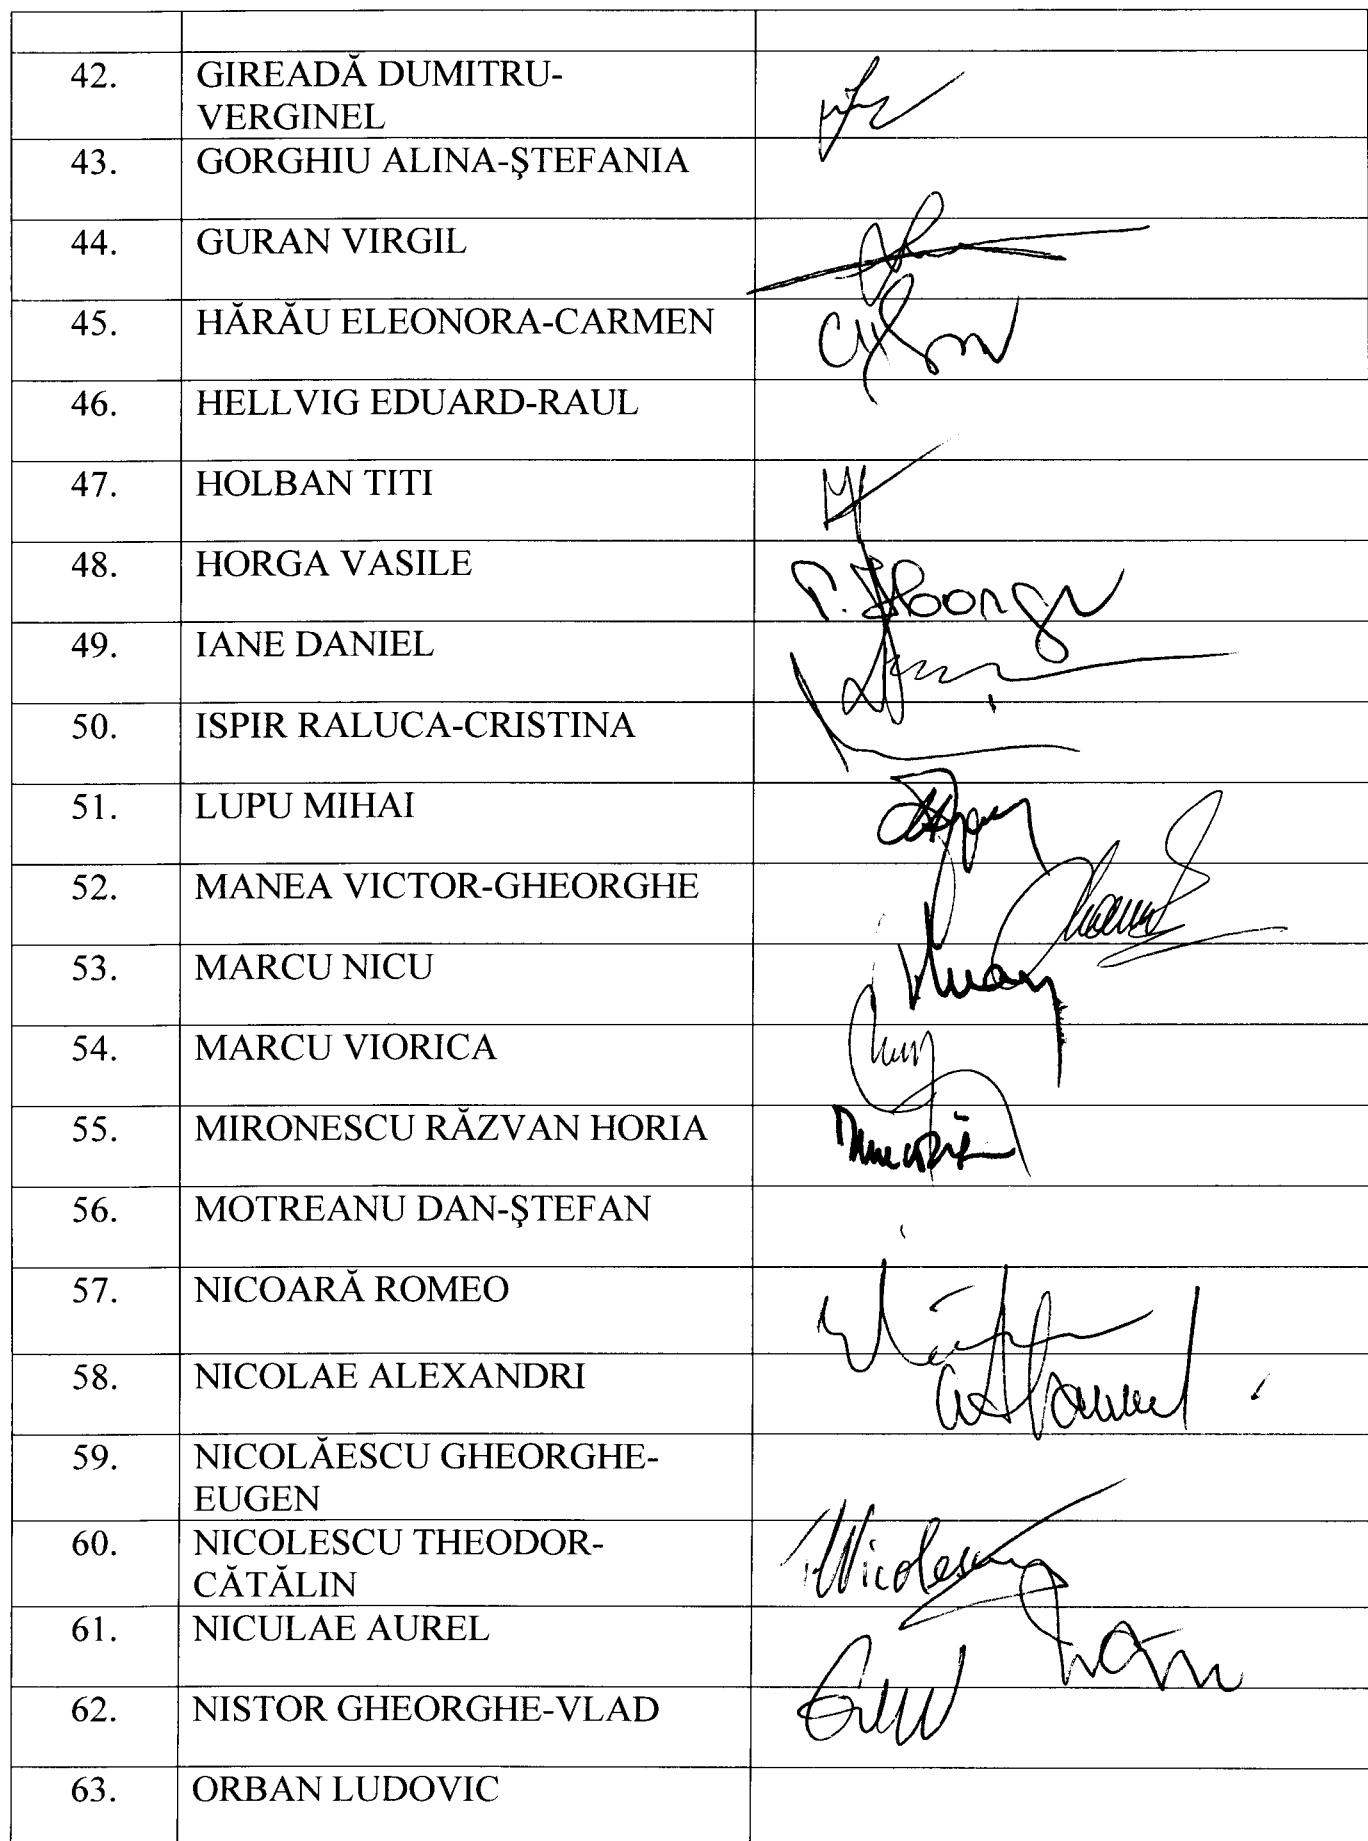 42. GIREADĂ DUMITRU-
VERGINEL
43. GORGHIU ALINA-ŞTEFANIA
44. GURAN VIRGIL
45. HĂRĂU ELEONORA-CARMEN
46. HELLVIG EDUARD-RAUL
47. HOLBAN TITI
48. HORGA VASILE
49. IANE DANIEL
50. ISPIR RALUCA-CRISTINA
51. LUPU MIHAI
52. MANEA VICTOR-GHEORGHE
53. MARCU NICU
54. MARCU VIORICA
55. MIRONESCU RĂZVAN HORIA
56. MOTREANU DAN-ŞTEFAN
57. NICOARĂ ROMEO
58. NICOLAE ALEXANDRI
59. NICOLĂESCU GHEORGHE-
EUGEN
60. NICOLESCU THEODOR-
CĂTĂLIN
61. NICULAE AUREL
62. NISTOR GHEORGHE-VLAD
63. ORBAN LUDOVIC